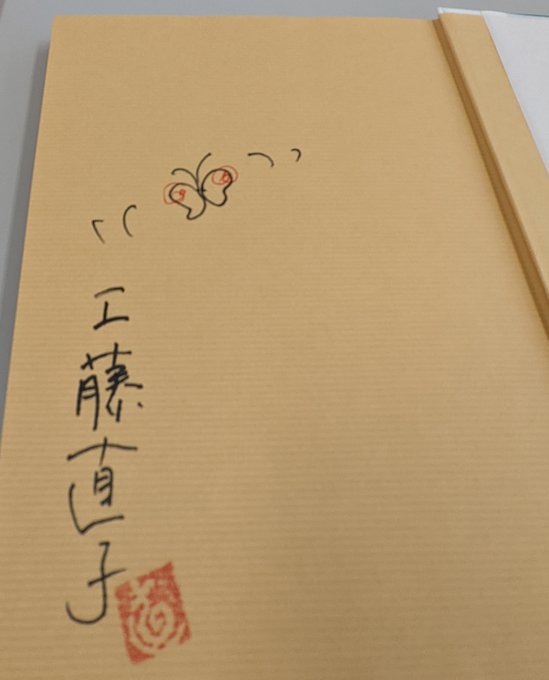 工藤直子